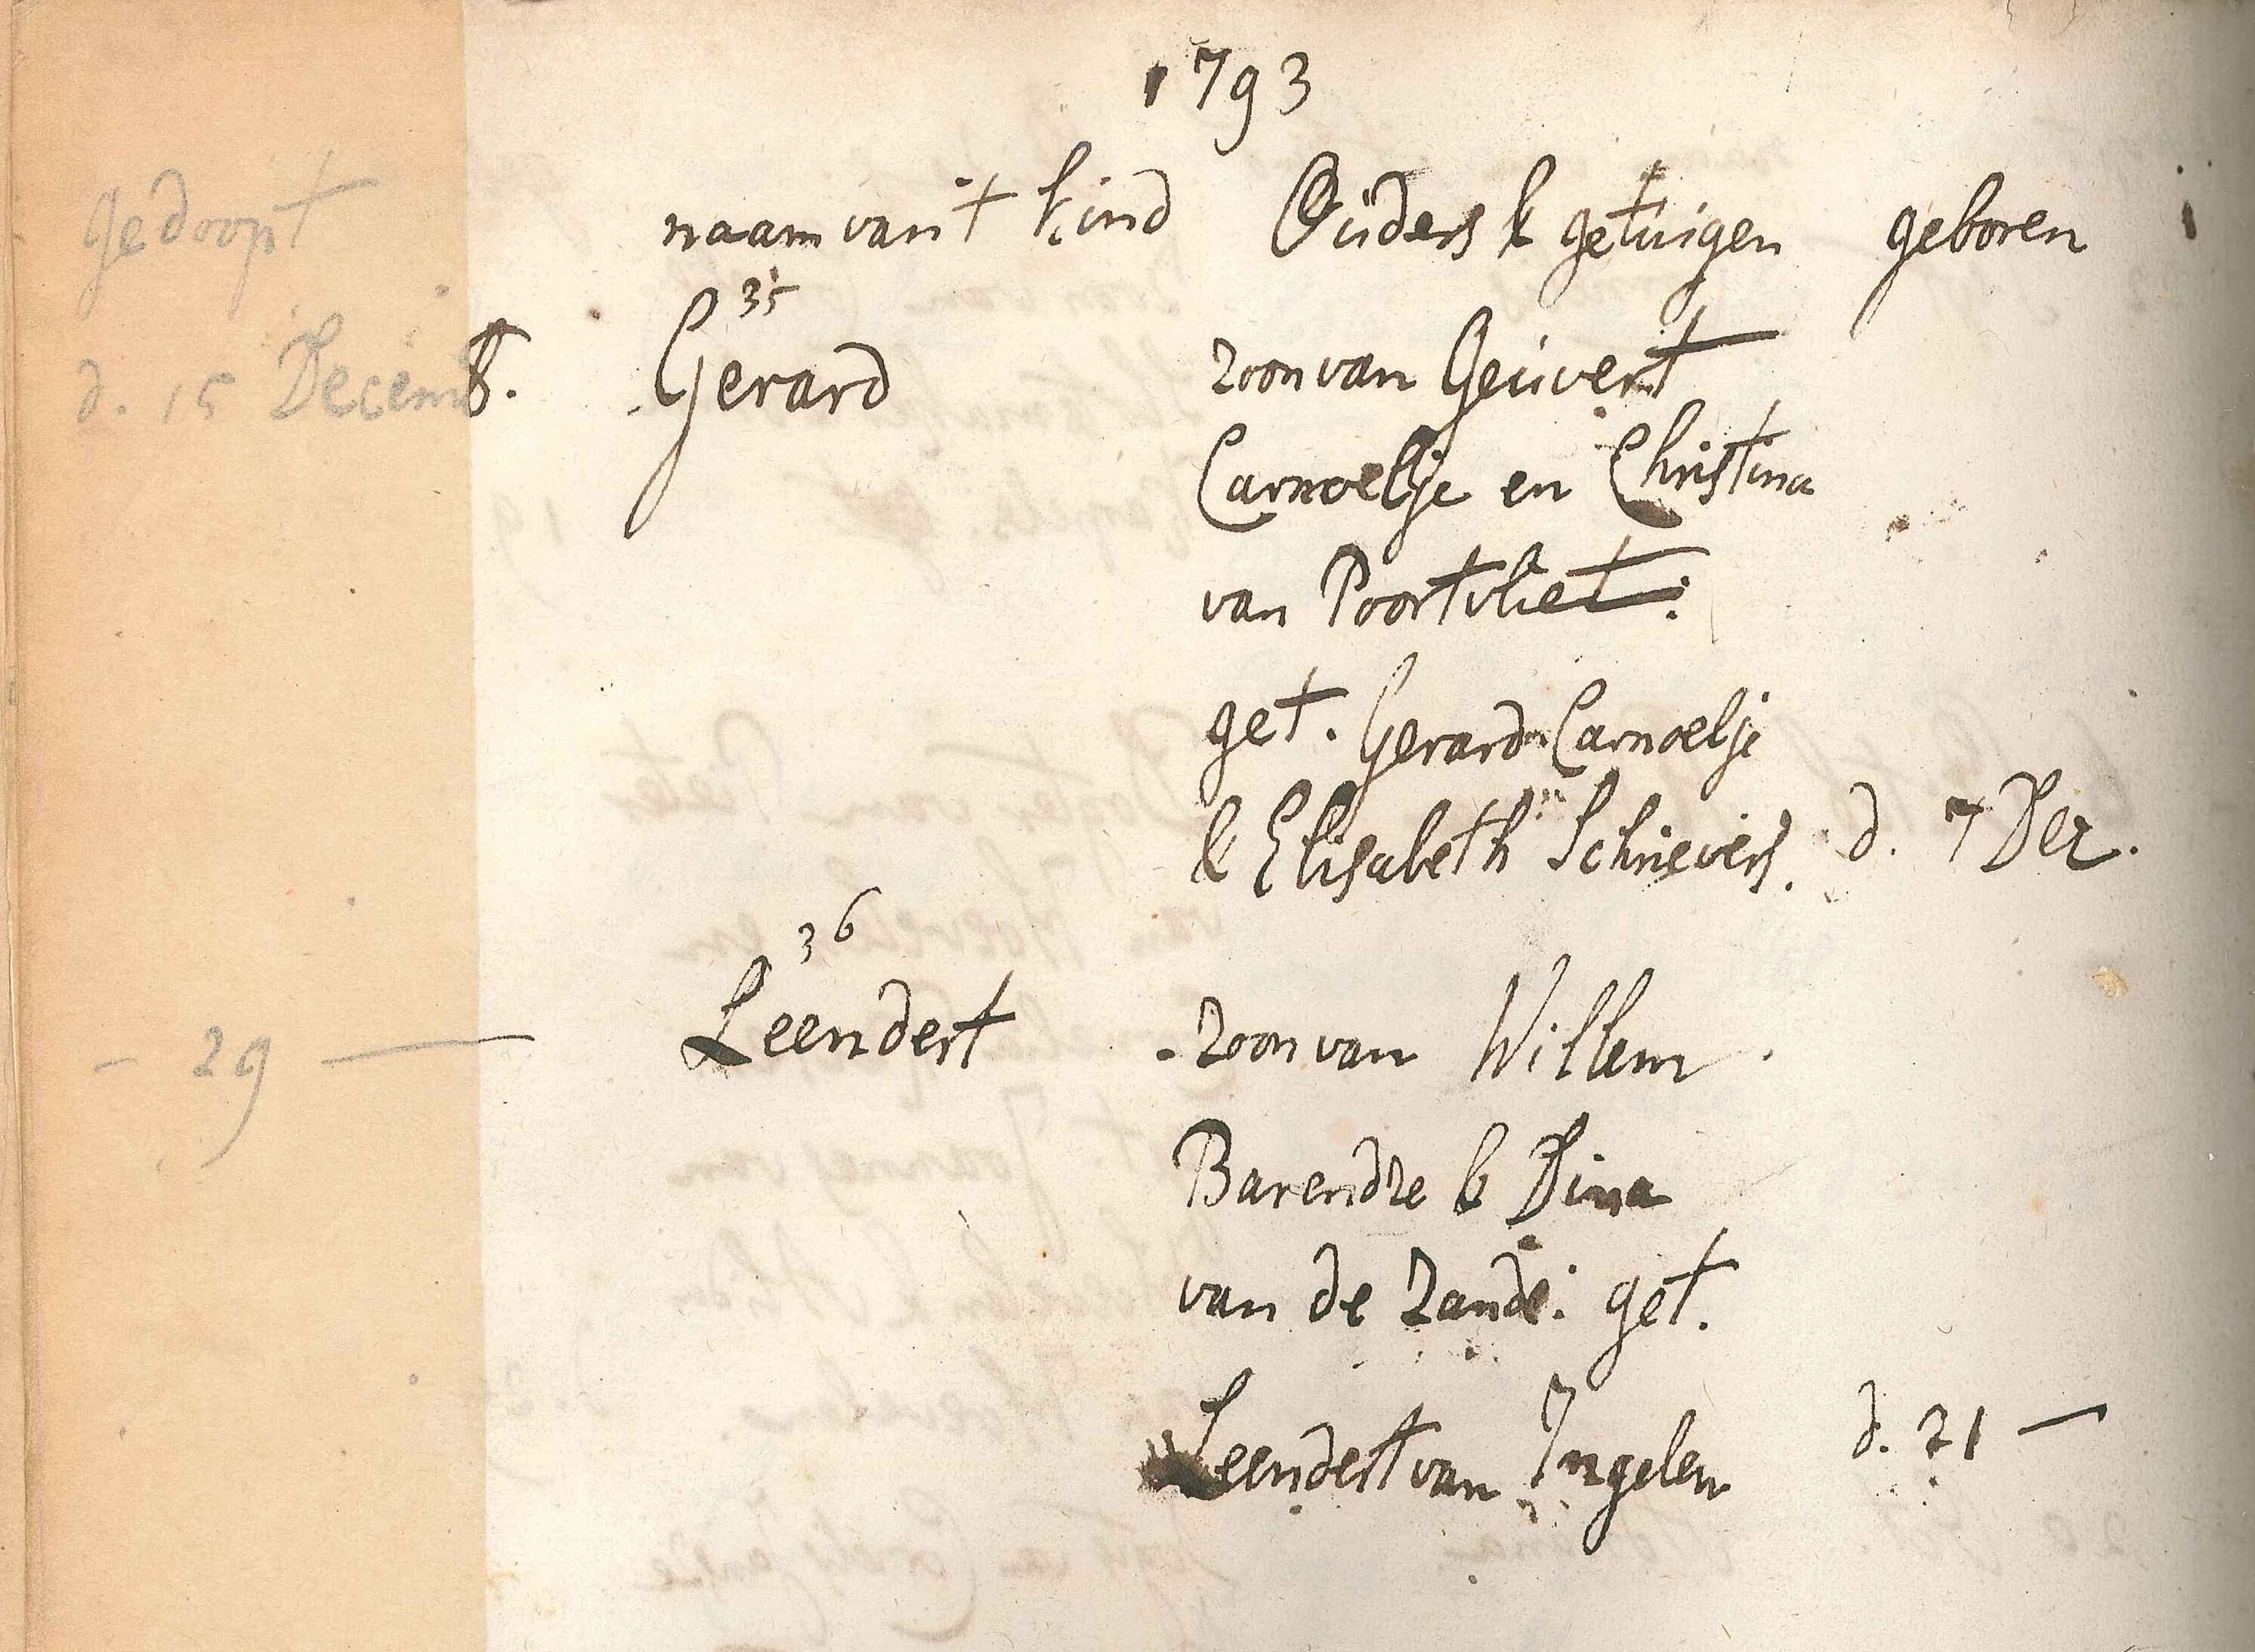 1793
gedoopt naam van 't kind Ouders & getuigen geboren
35
d. 15 Decemb. Gerard zoon van Geuvert
Carnoelje en Christina
van Poortvliet:
get. Gerard Carnoelje
& Elisabeth Schrievers. d. 7 Dec.
36
- 29 — Leendert zoon van Willem
Barendze & Dina
van de Zande: get.
Leendert van Ingelen d. 21 —